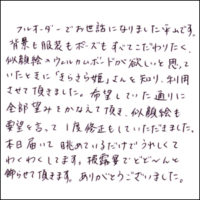 フルオーダーでお世話になりました平山です。
背景も服装もポーズもすべてこだわりたく、
似顔絵のウェルカムボードが欲しいと思っ
ていたときに「きらきら姫」さんを知り、利用
させて頂きました。希望していた通りに
全部望みをかなえて頂き、似顔絵も
要望を言って1度修正もしていただきました。
本日届いて眺めているだけでうれしくて
わくわくしてます。披露宴でどどーんと
飾らせて頂きます。ありがとうございました。